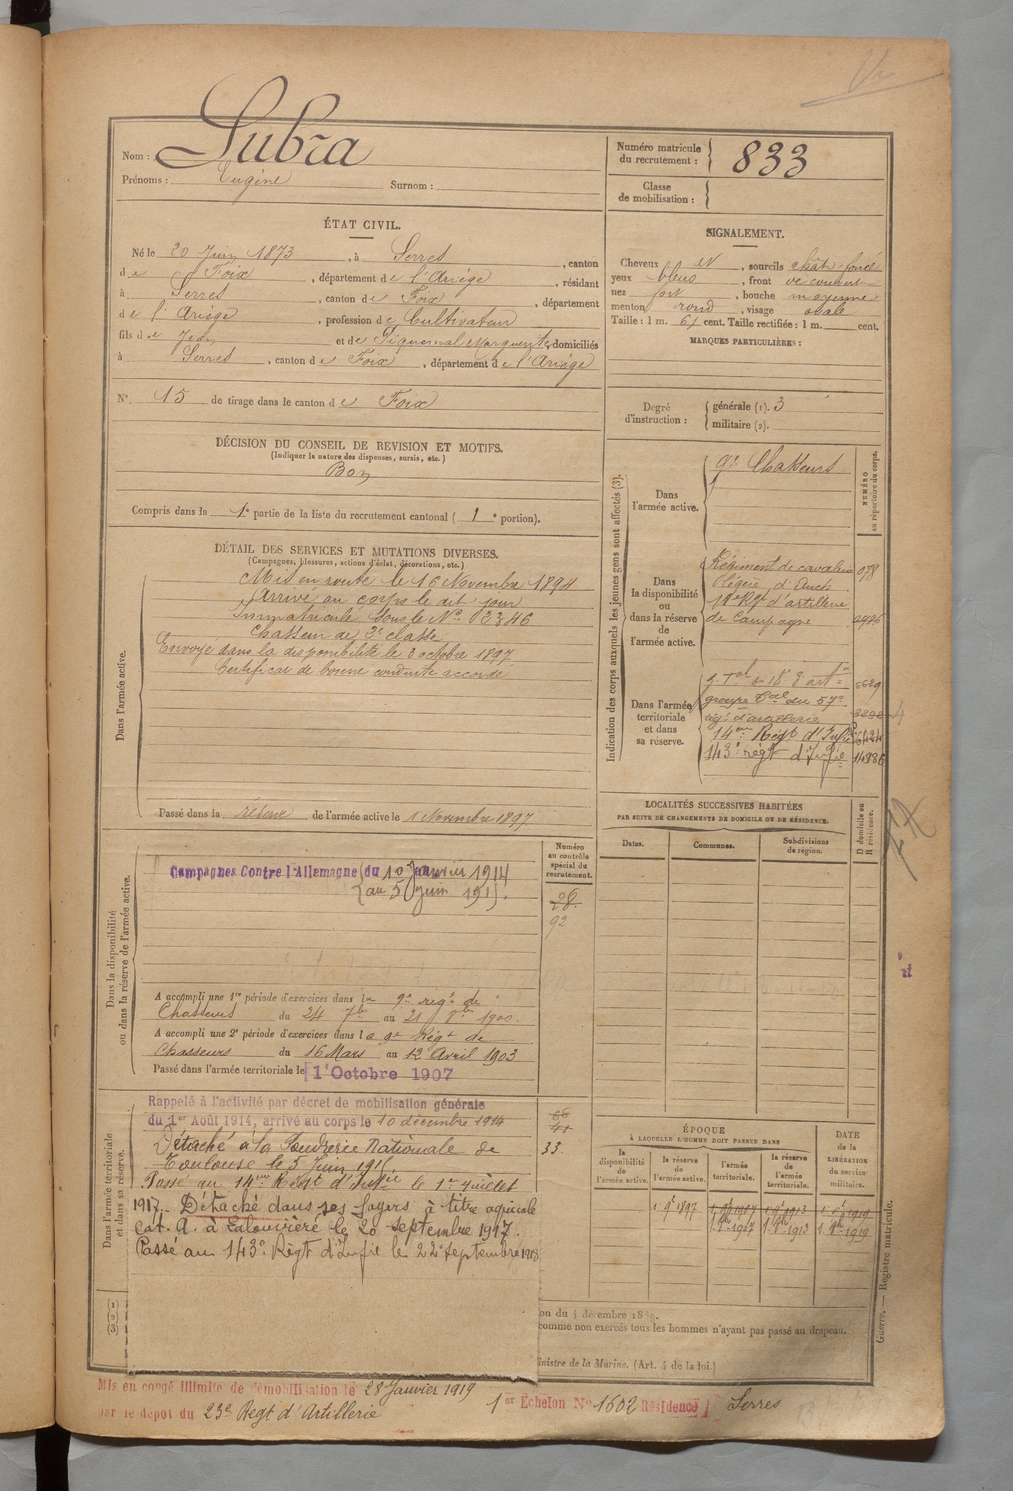 Nom : Subra
Prénoms : Eugène Surnom :
Numéro matricule du recrutement : 833
Classe de mobilisation :
ÉTAT CIVIL.
Né le 20 Juin 1873, à Serres, canton
de Foix, département de l'Ariège, résidant
à Serres, canton de Foix, département
de l'Ariège, profession de Cultivateur
fils de Jean et de Piquemal Marguerite, domiciliés
à Serres, canton de Foix, département de l'Ariège
N° 15 de tirage dans le canton de Foix
DÉCISION DU CONSEIL DE REVISION ET MOTIFS.
(Indiquer la nature des dispenses, sursis, etc.)
Bon
Compris dans la 1e partie de la liste du recrutement cantonal ( 1e portion).
SIGNALEMENT.
Cheveux et, sourcils chât. foncé
yeux bleus, front découvert
nez fort, bouche moyenne
menton rond, visage ovale
Taille : 1 m. 61 cent. Taille rectifiée : 1 m. cent.
MARQUES PARTICULIÈRES :
Degré d'instruction :
générale (1). 3
militaire (2).
DÉTAIL DES SERVICES ET MUTATIONS DIVERSES.
(Campagnes, blessures, actions d'éclat, décorations, etc.)
Dans l'armée active.
Mis en route le 16 Novembre 1894
Arrivé au corps le dit jour
Immatriculé sous le N° 3346
Chasseur de 2e classe
Envoyé dans la disponibilité le 2 octobre 1897.
Certificat de bonne conduite accordé
Passé dans la réserve de l'armée active le 1 Novembre 1897
Indication des corps auxquels les jeunes gens sont affectés (3).
NUMÉRO au répertoire du corps.
Dans l'armée active.
9e Chasseurs
Dans la disponibilité ou dans la réserve de l'armée active.
Régiment de cavalerie 078
légère d'Auch
18e Rgt d'artillerie
de Campagne
Dans l'armée territoriale et dans sa réserve.
groupe Tal du 57e
régt d'artillerie
14e Régt d'Infie
143e régt d'Infie
LOCALITÉS SUCCESSIVES HABITÉES
PAR SUITE DE CHANGEMENTS DE DOMICILE OU DE RÉSIDENCE.
Dates. Communes. Subdivisions de région. D domicile ou R résidence.
Dans la disponibilité ou dans la réserve de l'armée active.
Numéro au contrôle spécial du recrutement.
Campagnes Contre l'Allemagne du 10 Janvier 1914
au 5 Juin 191
28
92
A accompli une 1re période d'exercices dans le 9e régt de
Chasseurs du 24 7bre au 21 8bre 1900.
A accompli une 2e période d'exercices dans le 9e Régt de
Chasseurs du 16 Mars au 12 Avril 1903
Passé dans l'armée territoriale le 1er Octobre 1907
Dans l'armée territoriale et dans sa réserve.
Rappelé à l'activité par décret de mobilisation générale
du 1er Août 1914, arrivé au corps le 10 décembre 1914
Détaché à la Poudrerie Nationale de 33
Toulouse le 5 Juin 191
Passé au 14me Régt d'Infie le 1er Juillet
1917. Détaché dans ses foyers à titre agricole
Cat. A. à Lalouvière le 20 septembre 1917.
Passé au 143e Régt d'Infie le 22 septembre 1918
ÉPOQUE
À LAQUELLE L'HOMME DOIT PASSER DANS
la disponibilité de l'armée active.
la réserve de l'armée active.
l'armée territoriale.
la réserve de l'armée territoriale.
DATE de la LIBÉRATION du service militaire.
1 9b 1897 1 9b 1907 1 9b 1913 1 9b 1919
1 8b 1907 1 8b 1913 1 8b 1919
(1)
(2)
(3)
on du 4 décembre 1889.
comme non exercés tous les hommes n'ayant pas passé au drapeau.
inistre de la Marine. (Art. 4 de la loi.)
Guerre. — Registre matricule.
Mis en congé illimité de démobilisation le 28 Janvier 1919
par le dépôt du 23e Régt d'Artillerie
1er Echelon N° 1602 Résidence Serres